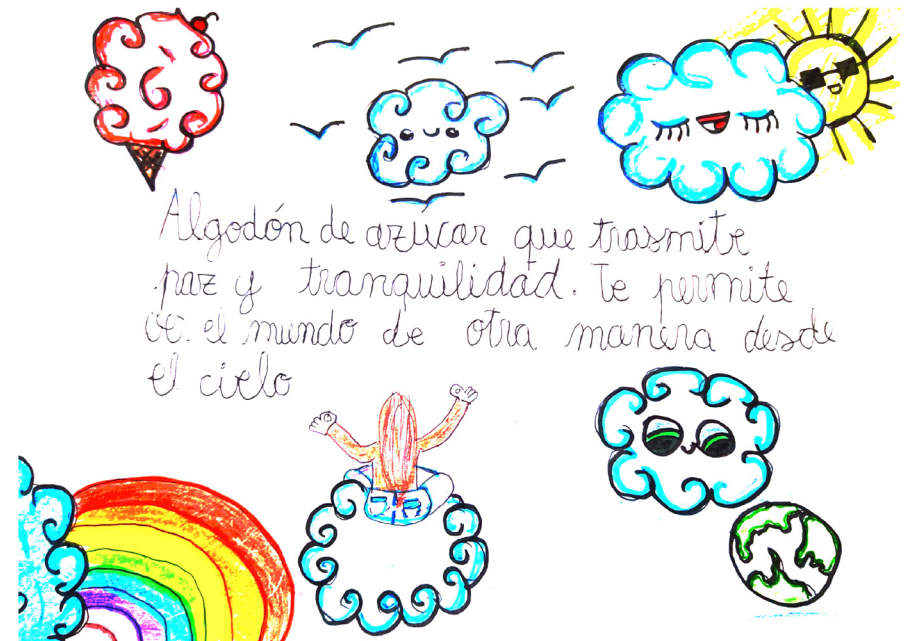 Algodón de azúcar que trasmite
paz y tranquilidad. Te permite
el mundo de otra manera desde
el cielo